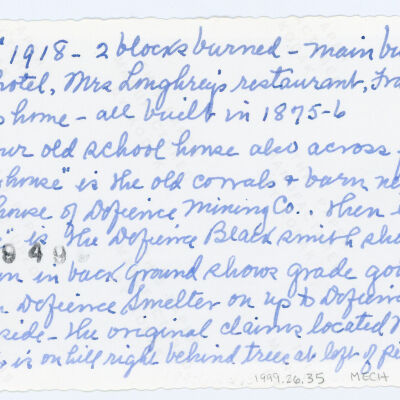 1918 - 2 blocks burned - main bu
hotel, Mrs Loughrey's restaurant, Fra
s home - all built in 1875-6
our old school house also across
house" is the old corrals + barn ne
house of Defience Mining Co.. then
" is the Defience Blacksmith sho
949
n in back ground shows grade goi
Defience Smelter on up to Defienc
side - the original claims located
is on hill right behind tree at left of pi
1999.26.35 MECH